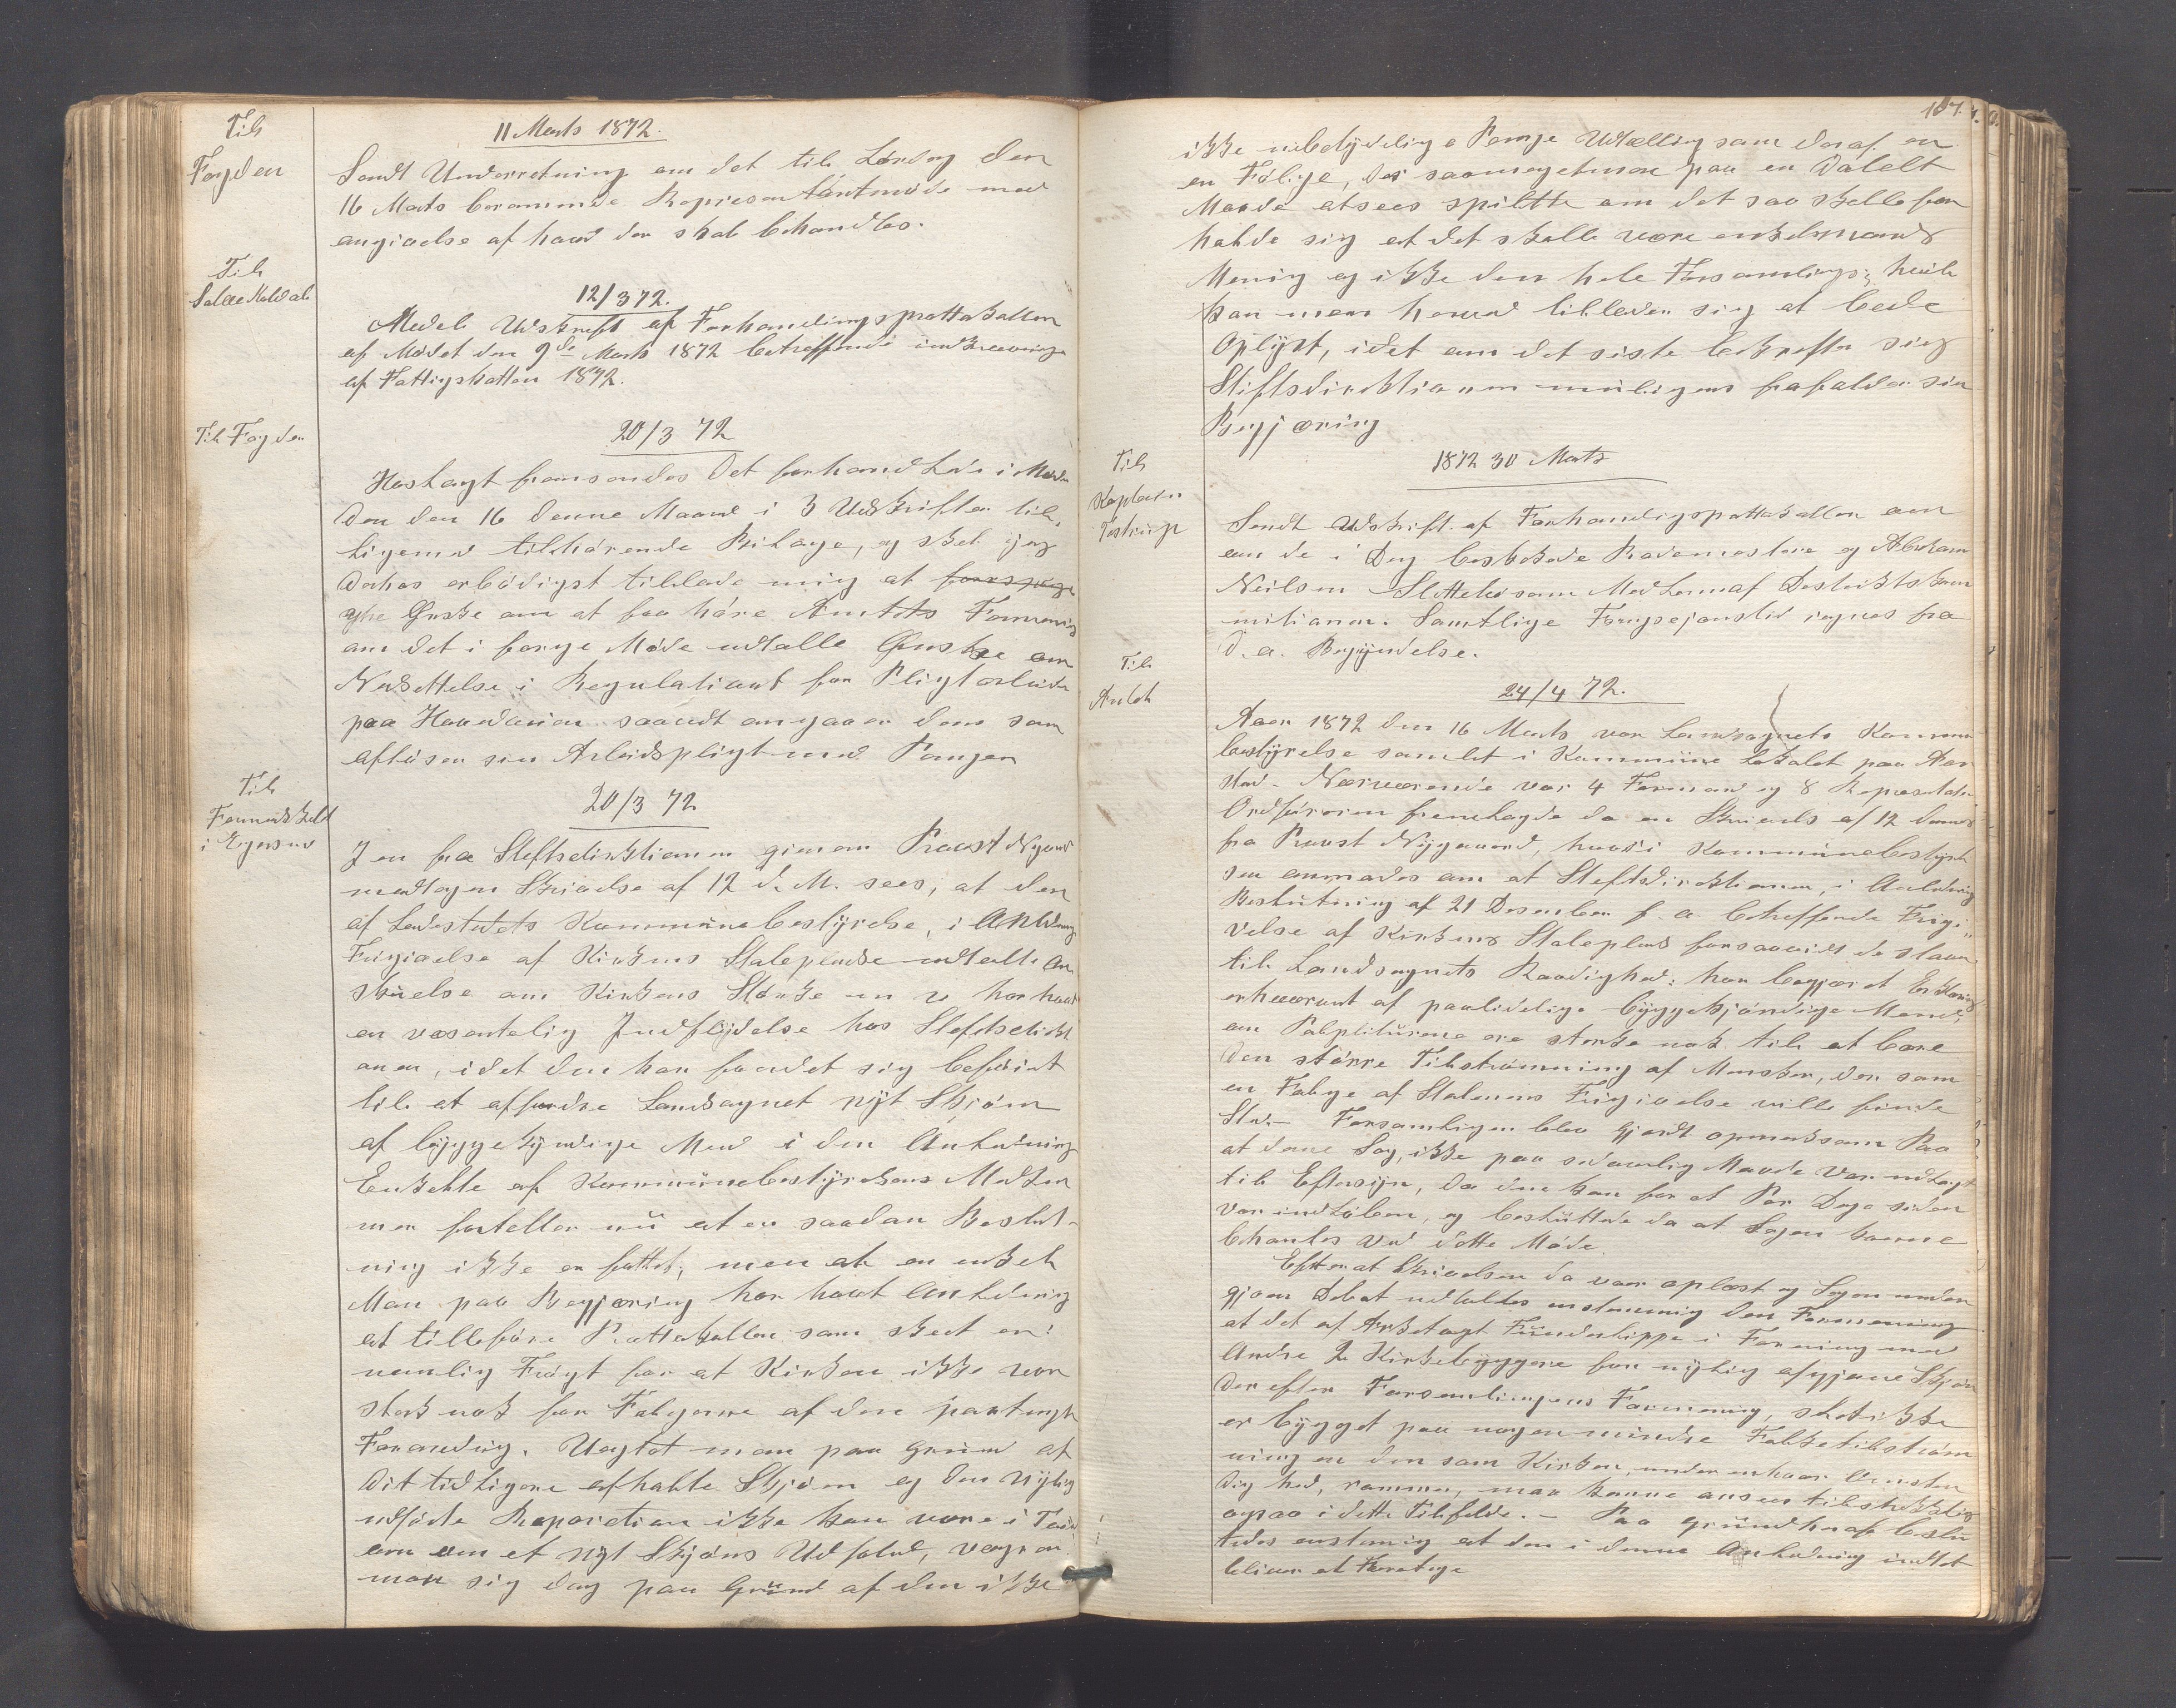 Til
Fogden
11 Marts 1872.
Sendt Underretning om det til Lørdag den
16 Marts berammede Representantmøde med
angivelse af hvad der skal behandles.
Til
Salve Modal
12/3 72.
Medel Udskrift af Forhandlingsprottokollen
af Mødet den 9de Marts 1872 betreffende
af Fattigskatten 1872.
Til Fogden
20/3 72
Hoslagt fremsendes det forhandlede i Møde
den den 16 denne Maaned i 3 Udskrifter til-
ligemed tilhørende Bilage, og skal jeg
derhos erbødigst tillade mig at
Ønske om at faa høre Amtets Formening
om det i forige Møde udtalte Ønske om
Nedsettelse i Regulativet for Pligtarbeide
paa Hovedveien saavidt angaaer dem som
afløser sin Arbeidspligt med Penger
Til
Formandskabet
i Egersund
20/3 72
I en fra Stiftsdirektionen gjenem Provst Nygaard
modtagen Skrivelse af 12 d. M. sees, at den
af Ladestedets Kommunebestyrelse, i Anledning
Frigivelse af Kirkens Stolepladse udtalte An
skuelse om Kirkens Styrke har havt
en væsentelig Indflydelse hos Stiftsdirekti
onen, idet den har fundet sig beføiet
til at affordre Landsognet nyt Skjøn
af byggekyndige Mend i den Anledning
Enkelte af Kommunebestyrelsens Medlem
mer forteller nu at en saadan Beslut-
ning ikke er fattet, men at en enkelt
Man paa Begjæring har havt Anledning
at tilleføre Prottokollen som skeet er:
nemlig Frygt for at Kirken ikke var
sterk nok for Følgerne af den paatenkte
Forandring. Uagtet man paa Grund af
dit tidligere afholdte Skjøn og den nylig
udførte Reparation ikke kan være i Tvivl
om om et nyt Skjøns Udfald, vegrer
man sig dog paa Grund af den ikke
187.
ikke ubetydelige Penge Udtelling som deraf er
en Følge, der saameget mere paa en Dalelt
Maade atsees spildte om det saa skulle for
holde sig at det skulle være enkeltmands
Mening og ikke den hele Forsamlings; hvilket
kan man herved tillader sig at bede
Oplyst, idet om det siste bekrefter sig
Stiftsdirektionen muligens frafalder sin
Begjæring
Til
1872 30 Marts
Sendt Udskrift af Forhandligsprottokollen om
om de i Dag beskikkede Rodemestere og Abraham
Neilsen Sletteb som Medlem af Destriktskom
mitionen. Samtlige Forigsejonstid regnes fra
d. a. Begyndelse.
Til
Amtet
24/4 72.
Aaer 1872 den 16 Marts var Landsognets Kommune
bestyrelse samlet i Kommune Lokalet paa Aar
stad. Nærværende var 4 Formænd og 8 Represetanter
Ordføreren fremlagde da en Skrivels af 12 dennes
fra Provst Nygaard, hvori Kommunebestyrel
sen anmodes om at Stiftsdirektionen, i Anledning
Beslutning af 21 Desember f. a. betreffende Frigi„
velse af Kirkens Stoleplads forsaavidt de staar
til Landsognets Raadighed: har begjæret Erklæring
erhvervet af paalidelige byggekjøndige Mend;
om Pulpiturene ere sterke nok til at bære
den større Tilstrømning af Mensker, der som
en Følge af Stolenes Frigivelse ville finde
Sted.— Forsamlingen blev gjordt opmerksom Paa
at denne Sag, ikke paa sedvanlig Maade var udlagt
til Eftersyn, da den kun for et Par Dage siden
var indløben, og besluttede da at Sagen kunne
behanles ved dette Møde.
Efter at Skrivelsen da var oplæst og Sagen under
gjoen Debat udtaltes enstemmig den Formening
at det af Arkitegt Fünderlippe i Forening med
Andre 2 Kirkebyggere for nylig afgjorte Skjøn
der efter Forsamlingens Formening, slet ikke
er bygget paa nogen mindre Folketilstrøm
ning en den som Kirken, under enhver Omsten
dighed, rommer, maa kunne ansees tilstrekkelig
ogsaa i dette Tilfelde.— Paa Grund heraf beslu
tedes enstemig at den i denne Anledning indtet
bliver at Foretage